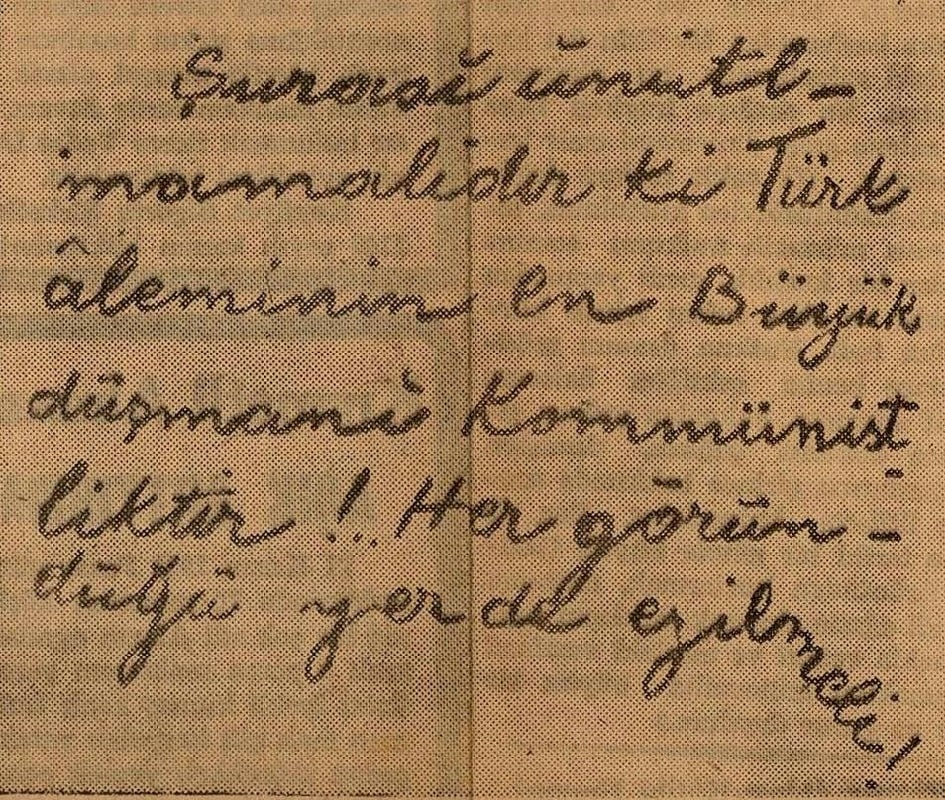 Şurası ünütl-
mamalıdır ki Türk
âleminin en Büyük
düşmanı Kommünist-
liktir !.. Her görün-
düğü yerde ezilmeli!